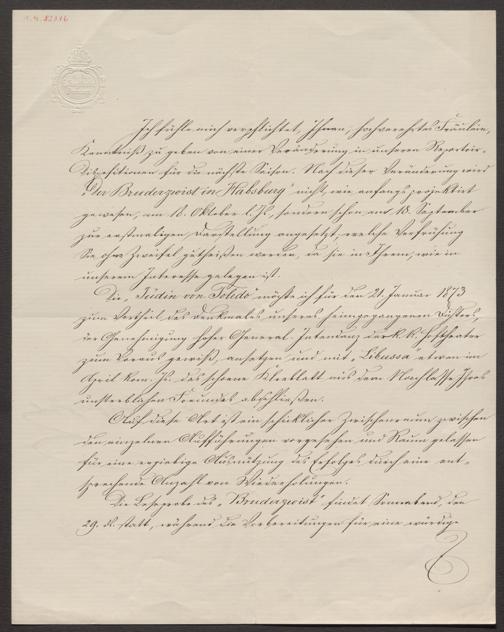 I. N. 82316
Ich fühle mich verpflichtet, Ihnen, hochverehrtes Fräulein,
Kenntniß zu geben von einer Veränderung in unseren Repertoir-
Dispositionen für die nächste Saison. Nach dieser Veränderung wird
"Der Bruderzwist in Habsburg" nicht, wie anfangs projektirt
gewesen, am 18. Oktober l. Js., sondern schon am 18. September
zur erstmaligen Darstellung angesetzt, welche Verfrühung
Sie ohne Zweifel gutheißen werden, da sie in Ihrem, wie in
unserem Interesse gelegen ist.
Die "Jüdin von Toledo" möchte ich für den 21. Januar 1873
zum Vortheil des Denkmales unseres heimgegangenen Dichters,
der Genehmigung hoher General-Intendanz der k. k. Hoftheater
zum Voraus gewiß, ansetzen und mit "Libussa" etwa im
April kom. Js. das schöne Kleeblatt aus dem Nachlasse Ihres
unsterblichen Freundes abschließen.
Auf diese Art ist ein schicklicher Zwischenraum zwischen
den einzelnen Aufführungen vorgesehen und Raum gelassen
für eine ergiebige Ausnützung des Erfolges durch eine ent-
sprechende Anzahl von Wiederholungen.
Die Leseprobe des "Bruderzwist" findet Sonnabend, den
29. d. statt, während die Vorbereitungen für eine würdige